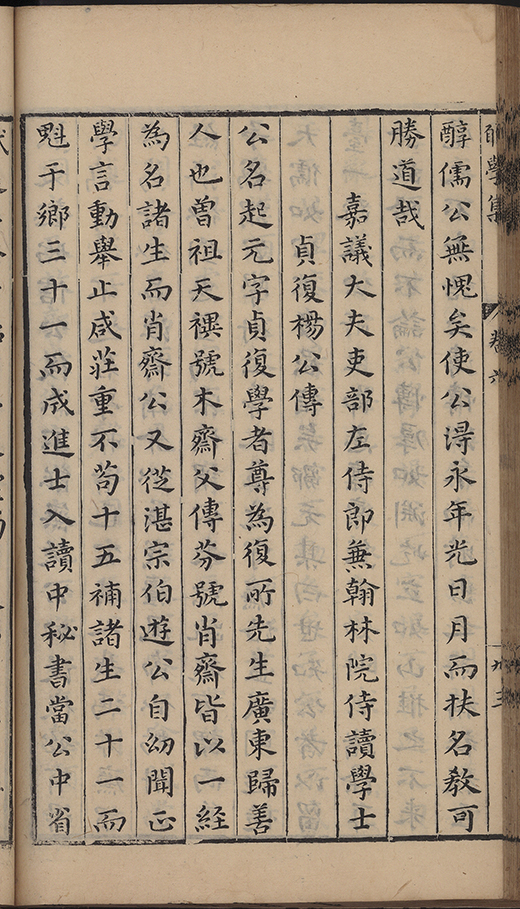 學集 卷六
醇儒公無愧矣使公淂永年光日月而扶名教可
勝道哉
嘉議大夫吏部左侍郎兼翰林院侍讀學士
貞復楊公傳
公名起元字貞復學者尊為復所先生廣東歸善
人也曽祖天禩號木齋父傳芬號肖齋皆以一経
為名諸生而肖齋公又從湛宗伯遊公自幼聞正
學言動舉止咸莊重不茍十五補諸生二十一而
魁于鄉三十一而成進士入讀中秘書當公中省